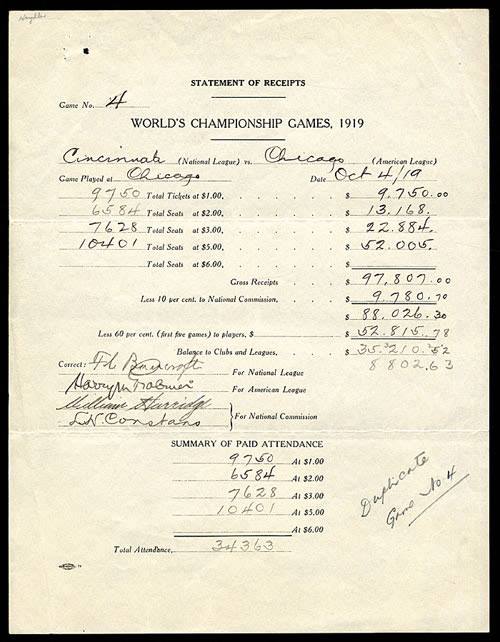 STATEMENT OF RECEIPTS
Game No. 4
WORLD'S CHAMPIONSHIP GAMES, 1919
Cincinnati (National League) vs. Chicago (American League)
Game Played at Chicago Date Oct 4/19
9750 Total Tickets at $1.00, $ 9.750.00
6584 Total Seats at $2.00, $ 13,168.
7628 Total Seats at $3.00, $ 22.884.
10401 Total Seats at $5.00, $ 52.005.
Total Seats at $6.00, $
Gross Receipts $ 97,807.00
Less 10 per cent. to National Commission, $ 9.780.70
$ 88,026.30
Less 60 per cent. (first five games) to players, $ $ 52.815.78
Balance to Clubs and Leagues, $ 35.210.52
8802.63
Correct: Bancroft For National League
Harry For American League
William Harridge
For National Commission
SUMMARY OF PAID ATTENDANCE
9750 At $1.00
6584 At $2.00
7628 At $3.00
10401 At $5.00
At $6.00
Total Attendance, 34363
Duplicate
Game No. 4